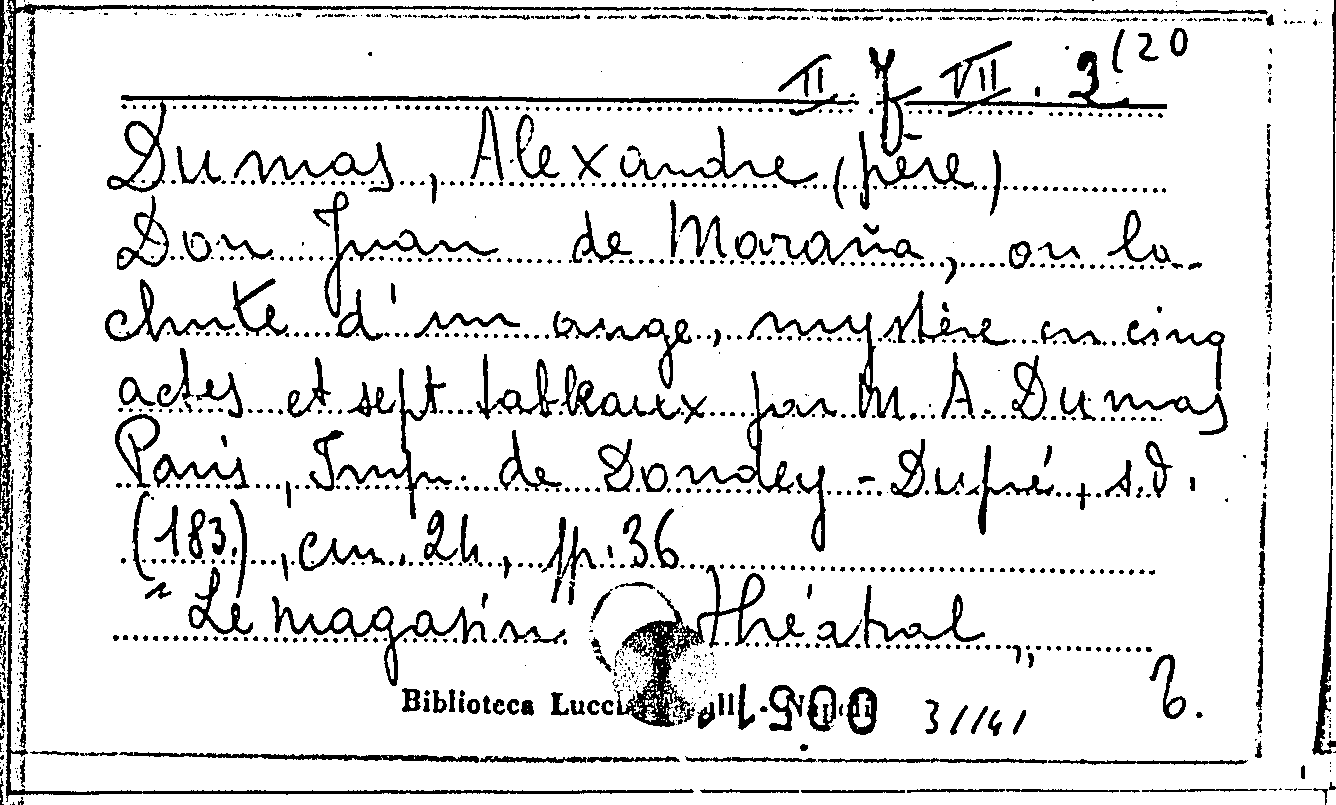 II. J. VII. 2/20
Dumas, Alexandre (père)
Don Juan de Maraña, ou la
chute d'un ange, mystère en cinq
actes et sept tableaux par M. A. Dumas
Paris, Imp. de Dondey-Dupré, s.d.
(183.), cm. 24, pp. 36
"Le magasin théatral„
Biblioteca